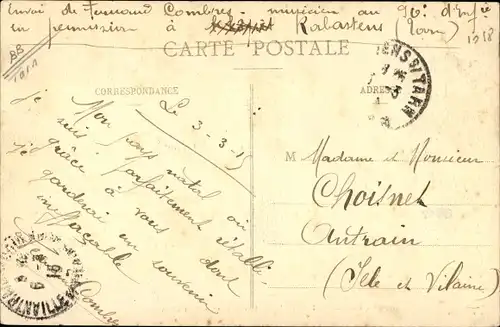 Envoi de Fernand Combres - musicien au 96e d'Inf.ie
en permission à Rabastens (Tarn)
1918
CARTE POSTALE
CORRESPONDANCE
ADRESSE
Le 3-3-15
Mon pays natal où
je suis parfaitement rétabli
grâce à vous dont
je garderai un souvenir
ineffaçable
Combres
M Madame et Monsieur
Choisnet
Antrain
(Ille et Vilaine)